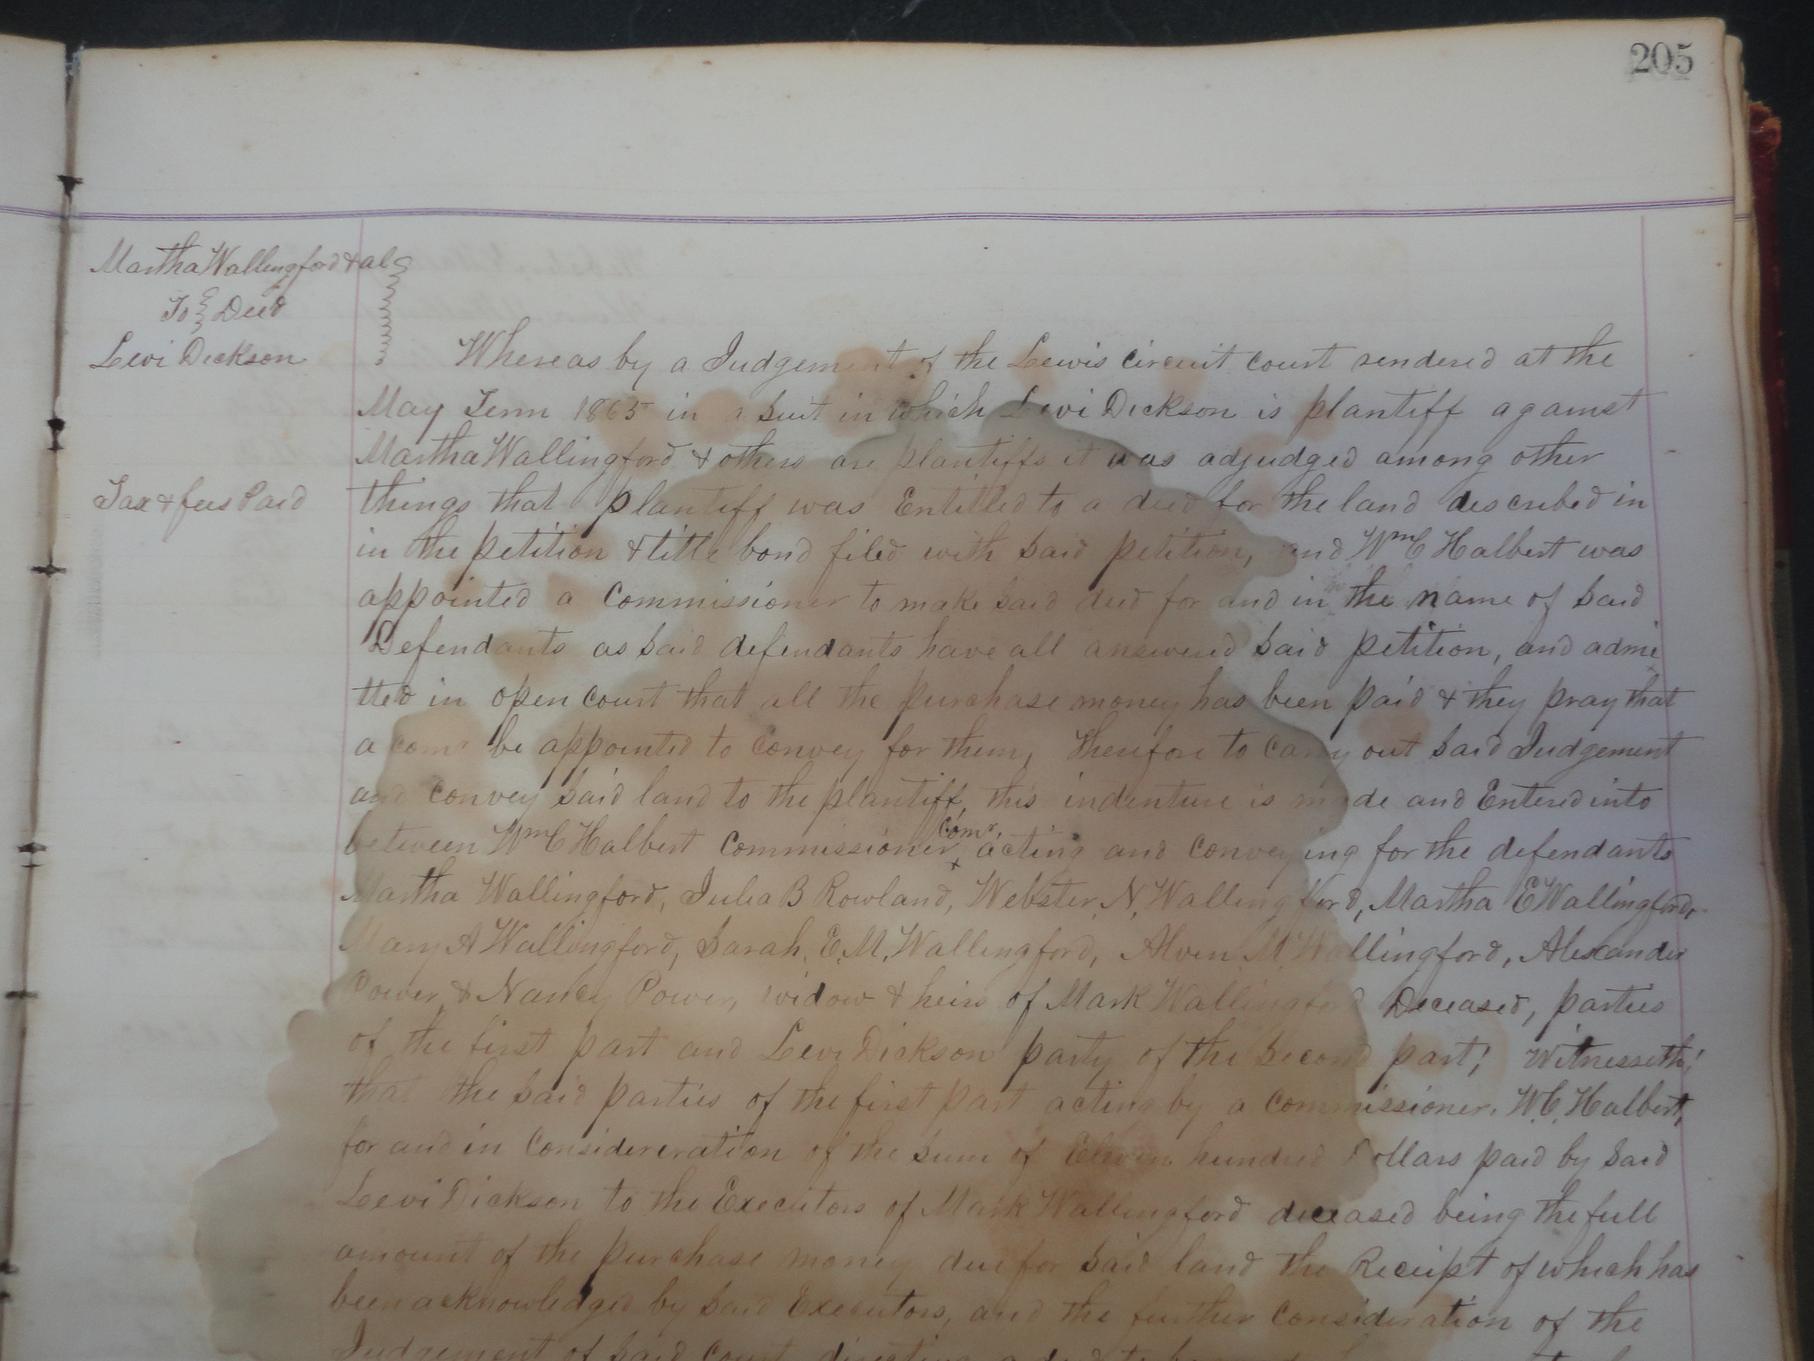 205
Martha Wallingford & al
To Deed
Levi Dickson
Tax & fees Paid
Whereas by a Judgement of the Lewis circuit court rendered at the
May Term 1865 in a suit in which Levi Dickson is plantiff against
Martha Wallingford & others are plantiffs it was adjudged among other
things that plantiff was Entitled to a deed for the land described in
in the petition & title bond filed with said petition, and Wm C Halbert was
appointed a Commissioner to make said deed for and in the name of said
Defendants as said defendants have all answered said petition, and admi
tted in open court that all the purchase money has been paid & they pray that
a comr be appointed to convey for them, Therefore to carry out said Judgement
and convey said land to the plantiff, this indenture is made and Entered into
between Wm C Halbert Commissioner Comr. acting and conveying for the defendants
Martha Wallingford, Julia B Rowland, Webster N. Wallingford, Martha E Wallingford,
Mary A Wallingford, Sarah. E. M. Wallingford, Alven M. Wallingford, Alexander
Power, & Nancy Power, widow & heirs of Mark Wallingford Deceased, parties
of the first part and Levi Dickson party of the second part; Witnesseth;
that the said parties of the first part acting by a commissioner. W. C. Halbert,
for and in Considereration of the sum of Eleven hundred Dollars paid by said
Levi Dickson to the Executors of Mark Wallingford deceased being the full
amount of the purchase money due for said land the Receipt of which has
been acknowledged by said Executors, and the further consideration of the
Judgement of said Court directing a deed to be